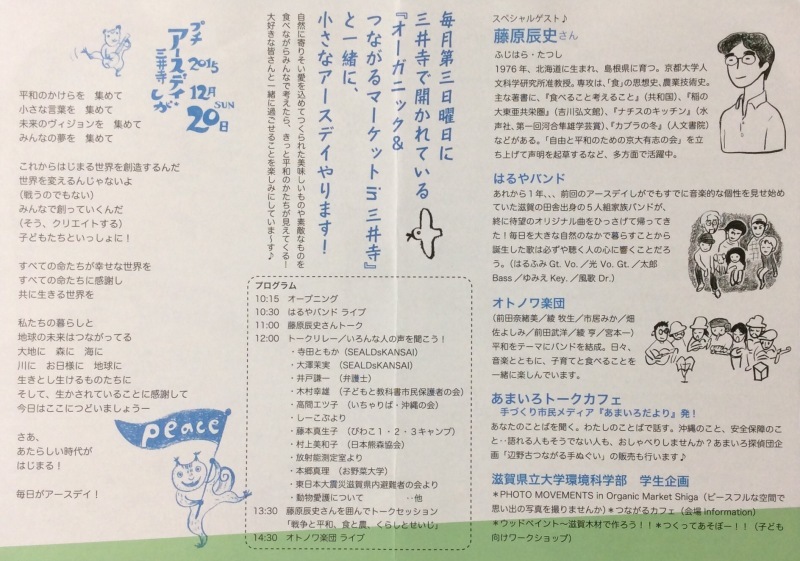 プチ
アースデイ
三井寺
しが
2015
12月
20日
SUN
平和のかけらを 集めて
小さな言葉を 集めて
未来のヴィジョンを 集めて
みんなの夢を 集めて
これからはじまる世界を創造するんだ
世界を変えるんじゃないよ
（戦うのでもない）
みんなで創っていくんだ
（そう、クリエイトする）
子どもたちといっしょに！
すべての命たちが幸せな世界を
すべての命たちに感謝し
共に生きる世界を
私たちの暮らしと
地球の未来はつながってる
大地に 森に 海に
川に お日様に 地球に
生きとし生けるものたちに
そして、生かされていることに感謝して
今日はここにつどいましょうー
さあ、
あたらしい時代が
はじまる！
毎日がアースデイ！
peace
毎月第三日曜日に
三井寺で開かれている
『オーガニック&
つながるマーケット in 三井寺』
と一緒に、
小さなアースデイやります！
自然に寄りそい愛を込めてつくられた美味しいものや素敵なものを
食べながらみんなで考えたら、きっと平和のかたちが見えてくる！
大好きな皆さんと一緒に過ごせることを楽しみにしていま〜す♪
プログラム
10:15 オープニング
10:30 はるやバンド ライブ
11:00 藤原辰史さんトーク
12:00 トークリレー／いろんな人の声を聞こう！
・寺田ともか（SEALDsKANSAI）
・大澤茉実（SEALDsKANSAI）
・井戸謙一（弁護士）
・木村幸雄（子どもと教科書市民保護者の会）
・高間エツ子（いちゃりば・沖縄の会）
・しーこぶより
・藤本真生子（びわこ１・２・３キャンプ）
・村上美和子（日本熊森協会）
・放射能測定室より
・本郷真理（お野菜大学）
・東日本大震災滋賀県内避難者の会より
・動物愛護について ‥他
13:30 藤原辰史さんを囲んでトークセッション
「戦争と平和、食と農、くらしとせいじ」
14:30 オトノワ楽団 ライブ
スペシャルゲスト♪
藤原辰史さん
ふじはら・たつし
1976年、北海道に生まれ、島根県に育つ。京都大学人
文科学研究所准教授。専攻は、「食」の思想史、農業技術史。
主な著書に、『食べること考えること』（共和国）、『稲の
大東亜共栄圏』（吉川弘文館）、『ナチスのキッチン』（水
声社、第一回河合隼雄学芸賞）、『カブラの冬』（人文書院）
などがある。「自由と平和のための京大有志の会」を立
ち上げて声明を起草するなど、多方面で活躍中。
はるやバンド
あれから１年、、、前回のアースデイしがでもすでに音楽的な個性を見せ始め
ていた滋賀の田舎出身の５人組家族バンドが、
終に待望のオリジナル曲をひっさげて帰ってき
た！毎日を大きな自然のなかで暮らすことから
誕生した歌は必ずや聴く人の心に響くことだろ
う。（はるふみ Gt. Vo.／光 Vo. Gt.／太郎
Bass／ゆみえ Key.／風歌 Dr.）
オトノワ楽団
（前田奈緒美／綾 牧生／市居みか／畑
佐よしみ／前田武洋／綾 亨／宮本一）
平和をテーマにバンドを結成。日々、
音楽とともに、子育てと食べることを
一緒に楽しんでいます。
あまいろトークカフェ
手づくり市民メディア『あまいろだより』発！
あなたのことばを聞く。わたしのことばで話す。沖縄のこと、安全保障のこ
と‥語れる人もそうでない人も、おしゃべりしませんか？あまいろ探偵団企
画「辺野古つながる手ぬぐい」の販売も行います♪
滋賀県立大学環境科学部 学生企画
＊PHOTO MOVEMENTS in Organic Market Shiga（ピースフルな空間で
思い出の写真を撮りませんか）＊つながるカフェ（会場 information）
＊ウッドペイント〜滋賀木材で作ろう！！＊つくってあそぼー！！（子ども
向けワークショップ）